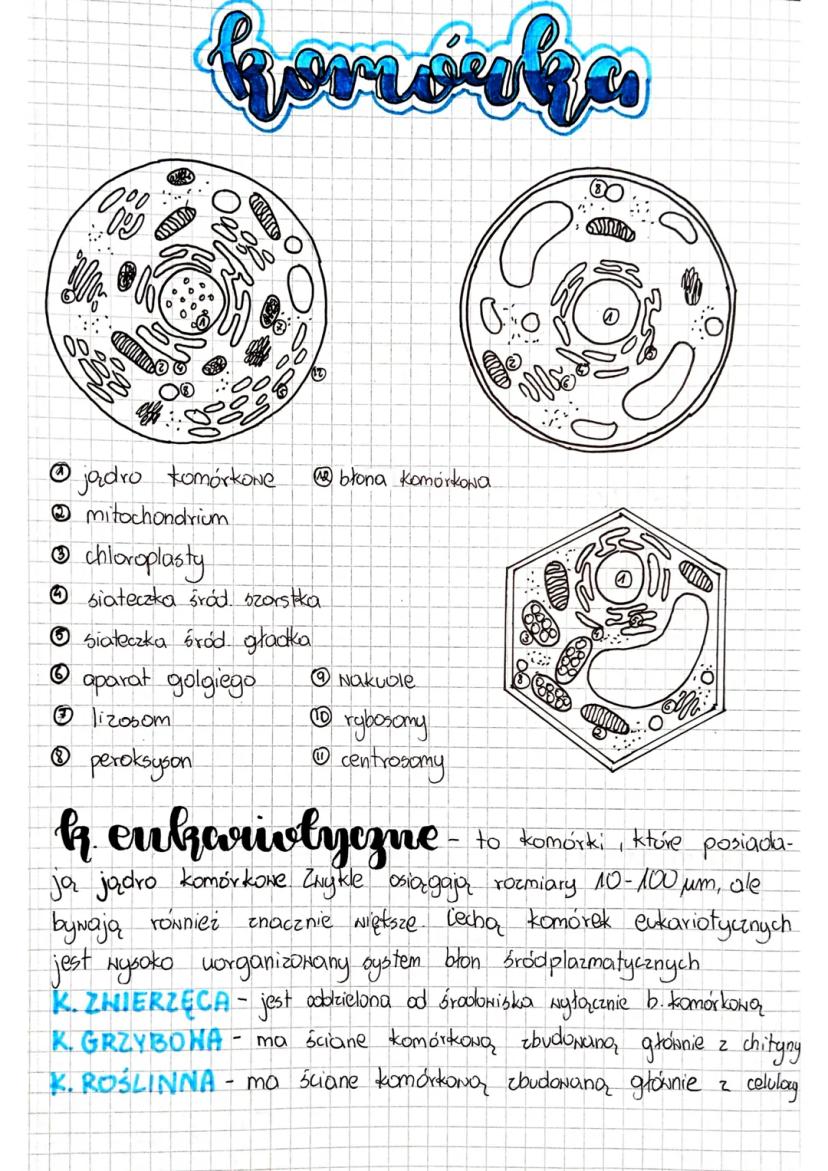 komórka
① jądro komórkowe ⑫ błona komórkowa
② mitochondrium
③ chloroplasty
④ siateczka śród. szorstka
⑤ siateczka śród. gładka
⑥ aparat golgiego ⑨ wakuole
⑦ lizosom ⑩ rybosomy
⑧ peroksyson ⑪ centrosomy
k. eukariotyczne - to komórki, które posiada-
ją jądro komórkowe. Zwykle osiągają rozmiary 10-100 µm, ale
bywają również znacznie większe. Cechą komórek eukariotycznych
jest wysoko uorganizowany system błon śródplazmatycznych
K. ZWIERZĘCA - jest oddzielona od środowiska wyłącznie b. komórkową
K. GRZYBOWA - ma ściane komórkową zbudowaną głównie z chityny
K. ROŚLINNA - ma ściane komórkową zbudowaną głównie z celulozy